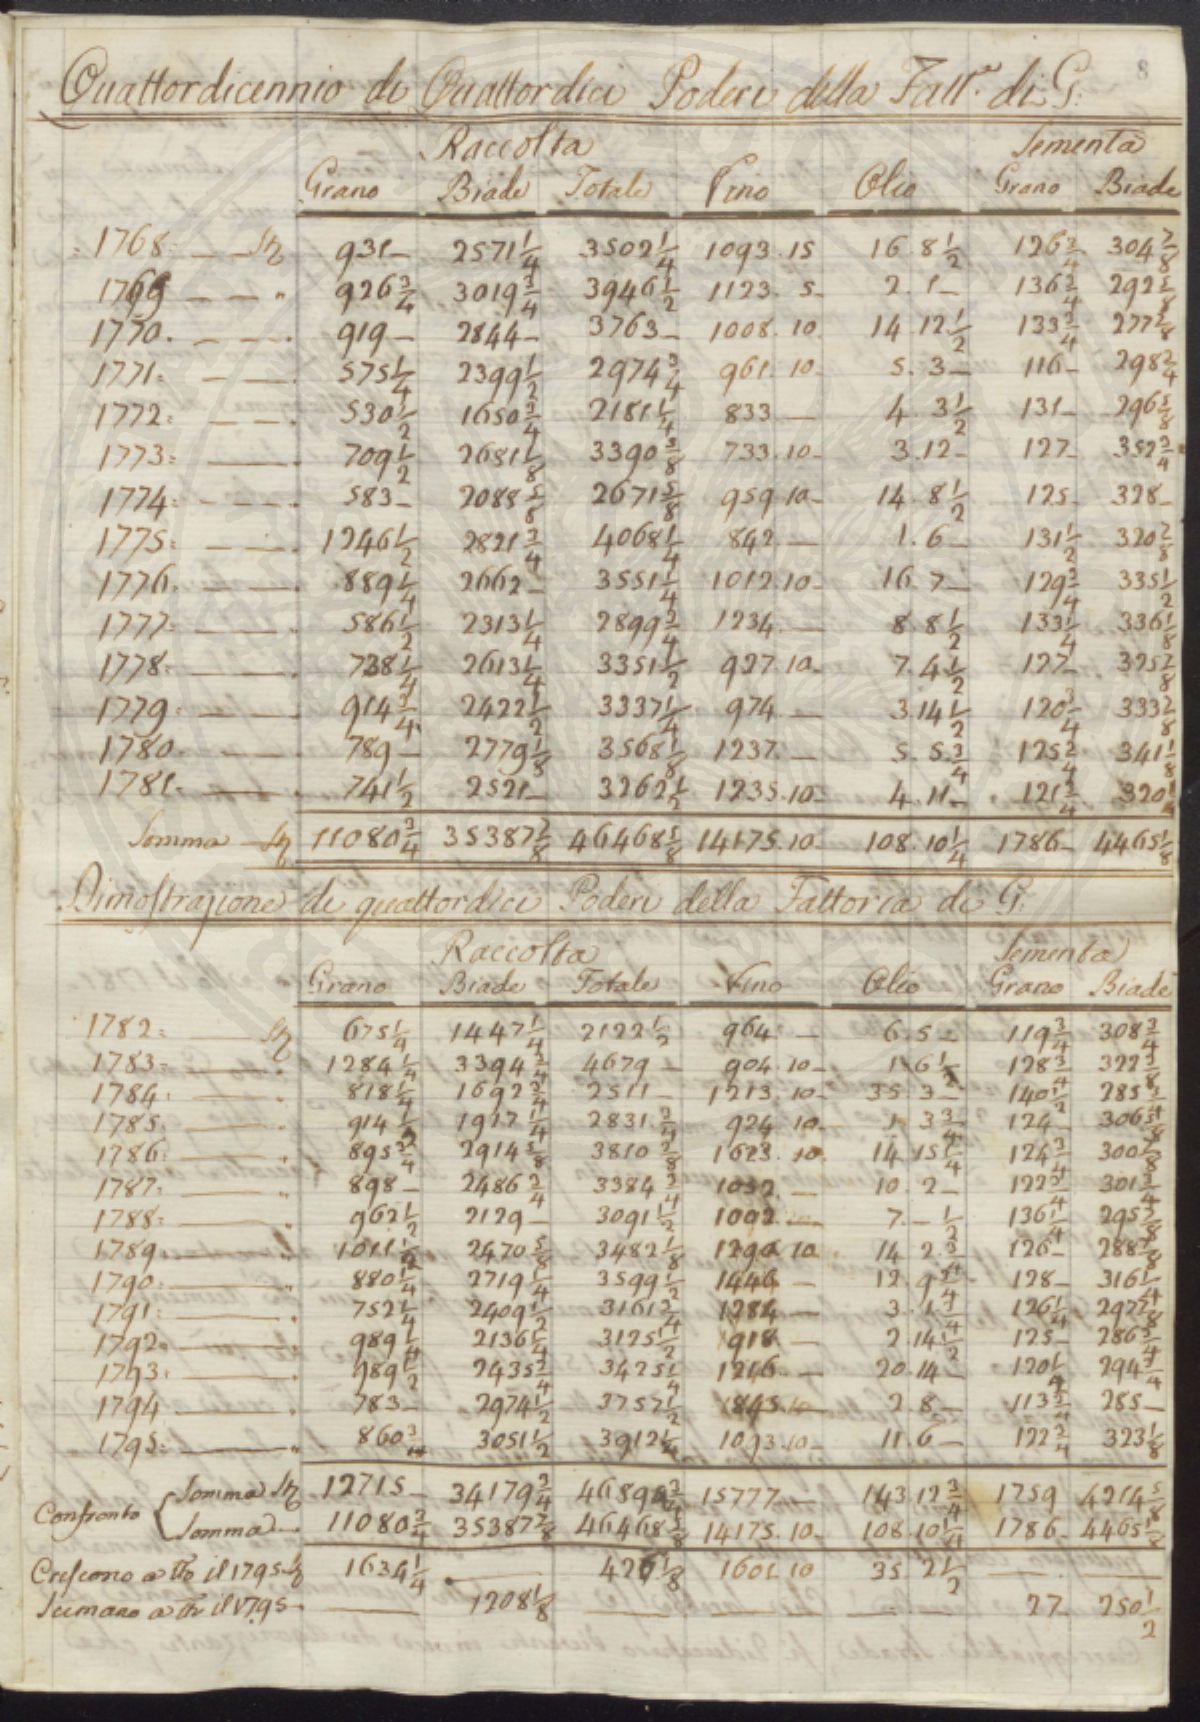 8
Quattordicennio di Quattordici Poderi della Fatt.a di G:
Raccolta Sementa
Grano Biade Totale Vino Olio Grano Biade
1768: 931 2571 1/4 3502 1/4 1093.15 16.8 1/2 126 3/4 304 7/8
1769 926 3/4 3019 3/4 3946 1/2 1123.5 2.1 136 3/4
1770. 919 2844 3763 1008.10 14.12 1/2 133 3/4
1771: 575 1/4 2399 1/2 2974 3/4 961.10 5.3 116 298 2/4
1772: 530 1/2 1650 3/4 2181 1/4 833 4.3 1/2 131 296 5/8
1773: 709 1/2 2681 1/8 3390 5/8 733.10 3.12 127 352 3/4
1774: 583 2088 5/8 2671 5/8 959.10 14.8 1/2 125 328
1775: 1246 1/2 2821 3/4 4068 1/4 842 1.6 131 1/2 320 2/8
1776. 889 1/4 2662 3551 1/4 1012.10 16.7 129 3/4 335 1/2
1777: 586 1/2 2313 1/4 2899 3/4 1234 8.8 1/2 133 1/4 336 1/8
1778: 738 1/4 2613 1/4 3351 1/2 927.10 7.4 1/2 127 325 2/8
1779: 914 3/4 2422 1/2 3337 1/4 974 3.14 1/2 120 3/4 333 2/8
1780. 789 2779 1/8 3568 1/8 1237 5.5 3/4 125 2/4 341 1/8
1781. 741 1/2 2521 3262 1/2 1235.10 4.11 121 3/4 320 1/4
Somma 11080 3/4 35387 7/8 46468 5/8 14175.10 108.10 1/4 1786 4465 1/8
Dimostrazione di quattordici Poderi della Fattoria di G:
Raccolta Sementa
Grano Biade Totale Vino Olio Grano Biade
1782: 675 1/4 1447 1/4 2122 1/2 964 6.5 119 3/4 308 3/4
1783: 1284 1/4 3394 3/4 4679 904.10 1.6 1/2 128 3/4
1784. 818 1/4 1692 3/4 2511 1213.10 35.3 140 1/2
1785. 914 1/2 1917 1/4 2831 3/4 924.10 1.3 3/4 124
1786: 895 3/4 2914 5/8 3810 3/8 1623.10 14.15 1/4 124 3/4
1787: 898 2486 3/4 3384 3/4 1032 10.2 122 3/4 301 3/4
1788: 962 1/2 2129 3091 1/2 1092 7.– 1/2 136 1/4
1789. 1011 1/2 2470 5/8 3482 1/8 1290.10 14.2 126
1790. 880 1/4 2719 1/4 3599 1/2 1446 12.9 128 316 1/4
1791: 752 1/4 2409 1/2 3161 3/4 1284 3.1 3/4 126 1/4
1792. 989 1/4 2136 1/4 3125 1/2 918 2.14 1/2 125 286 3/4
1793: 989 1/2 2435 3/4 3425 1/4 1246 20.14 120 1/4 294 3/4
1794 783 2974 1/2 3757 1/2 1845.10 2.8 113 3/4 285
1795: 860 3/4 3051 1/2 3912 1/4 1093.10 11.6 122 3/4 323 1/8
Confronto Somma 12715 34179 3/4 46894 3/4 15777 143.12 3/4 1759 4214 5/8
Somma 11080 3/4 35387 7/8 46468 5/8 14175.10 108.10 1/4 1786 4465 1/8
Crescono a tto il 1795 1634 1/4 426 1/8 1601.10 35.2 1/2
Scemano a tto il 1795 1208 1/8 27 250 1/2